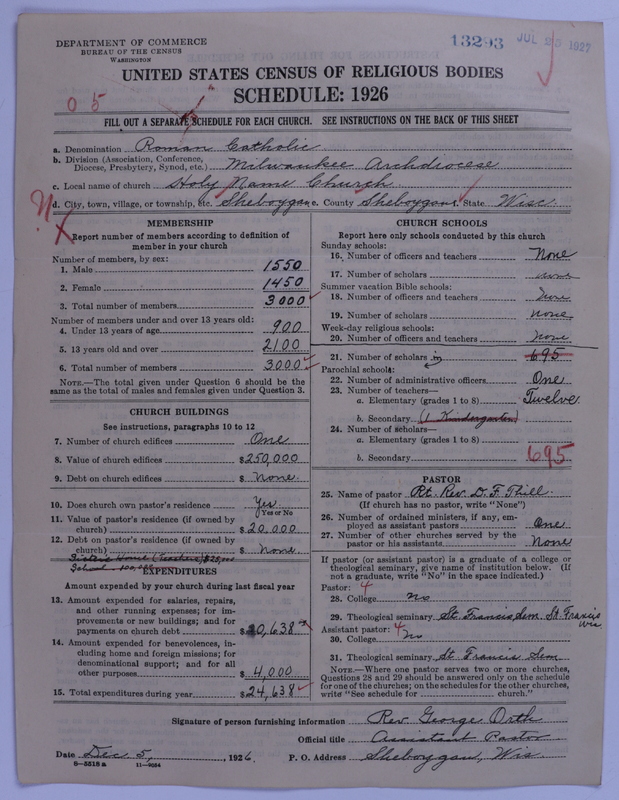 DEPARTMENT OF COMMERCE
BUREAU OF THE CENSUS
WASHINGTON
13293 JUL 25 1927
UNITED STATES CENSUS OF RELIGIOUS BODIES
SCHEDULE: 1926
0 5
FILL OUT A SEPARATE SCHEDULE FOR EACH CHURCH. SEE INSTRUCTIONS ON THE BACK OF THIS SHEET
a. Denomination Roman Catholic
b. Division (Association, Conference,
Diocese, Presbytery, Synod, etc.) Milwaukee Archdiocese
c. Local name of church Holy Name Church
d. City, town, village, or township, etc. Sheboygan e. County Sheboygan f. State Wisc
MEMBERSHIP
Report number of members according to definition of
member in your church
Number of members, by sex:
1. Male 1550
2. Female 1450
3. Total number of members 3000
Number of members under and over 13 years old:
4. Under 13 years of age 900
5. 13 years old and over 2100
6. Total number of members 3000
NOTE.—The total given under Question 6 should be the
same as the total of males and females given under Question 3.
CHURCH BUILDINGS
See instructions, paragraphs 10 to 12
7. Number of church edifices One
8. Value of church edifices $250,000
9. Debt on church edifices $ None
10. Does church own pastor's residence Yes
(Yes or No
11. Value of pastor's residence (if owned by
church) $20,000
12. Debt on pastor's residence (if owned by
church) $ None
Sisters Home (Teachers) $25,000
School - 100,000
EXPENDITURES
Amount expended by your church during last fiscal year
13. Amount expended for salaries, repairs,
and other running expenses; for im-
provements or new buildings; and for
payments on church debt $20,638
14. Amount expended for benevolences, in-
cluding home and foreign missions; for
denominational support; and for all
other purposes $4,000
15. Total expenditures during year $24,638
CHURCH SCHOOLS
Report here only schools conducted by this church
Sunday schools:
16. Number of officers and teachers None
17. Number of scholars none
Summer vacation Bible schools:
18. Number of officers and teachers None
19. Number of scholars None
Week-day religious schools:
20. Number of officers and teachers None
21. Number of scholars in 695
Parochial schools:
22. Number of administrative officers One
23. Number of teachers—
a. Elementary (grades 1 to 8) Twelve
b. Secondary (1 Kindergarten)
24. Number of scholars—
a. Elementary (grades 1 to 8)
b. Secondary 695
PASTOR
25. Name of pastor Rt. Rev. D. F. Thill
(If church has no pastor, write "None")
26. Number of ordained ministers, if any, em-
ployed as assistant pastors One
27. Number of other churches served by the
pastor or his assistants None
If pastor (or assistant pastor) is a graduate of a college or
theological seminary, give name of institution below. (If
not a graduate, write "No" in the space indicated.)
Pastor: 4
28. College No
29. Theological seminary St. Francis Sem. St. Francis Wis
Assistant pastor: 4
30. College No
31. Theological seminary St. Francis Sem
NOTE.—Where one pastor serves two or more churches,
Questions 28 and 29 should be answered only on the schedule
for one of the churches; on the schedules for the other churches,
write "See schedule for church."
Signature of person furnishing information Rev. George Orth
Official title Assistant Pastor
Date Dec 5, , 1926. P. O. Address Sheboygan, Wis
8—5518 a 11—9084